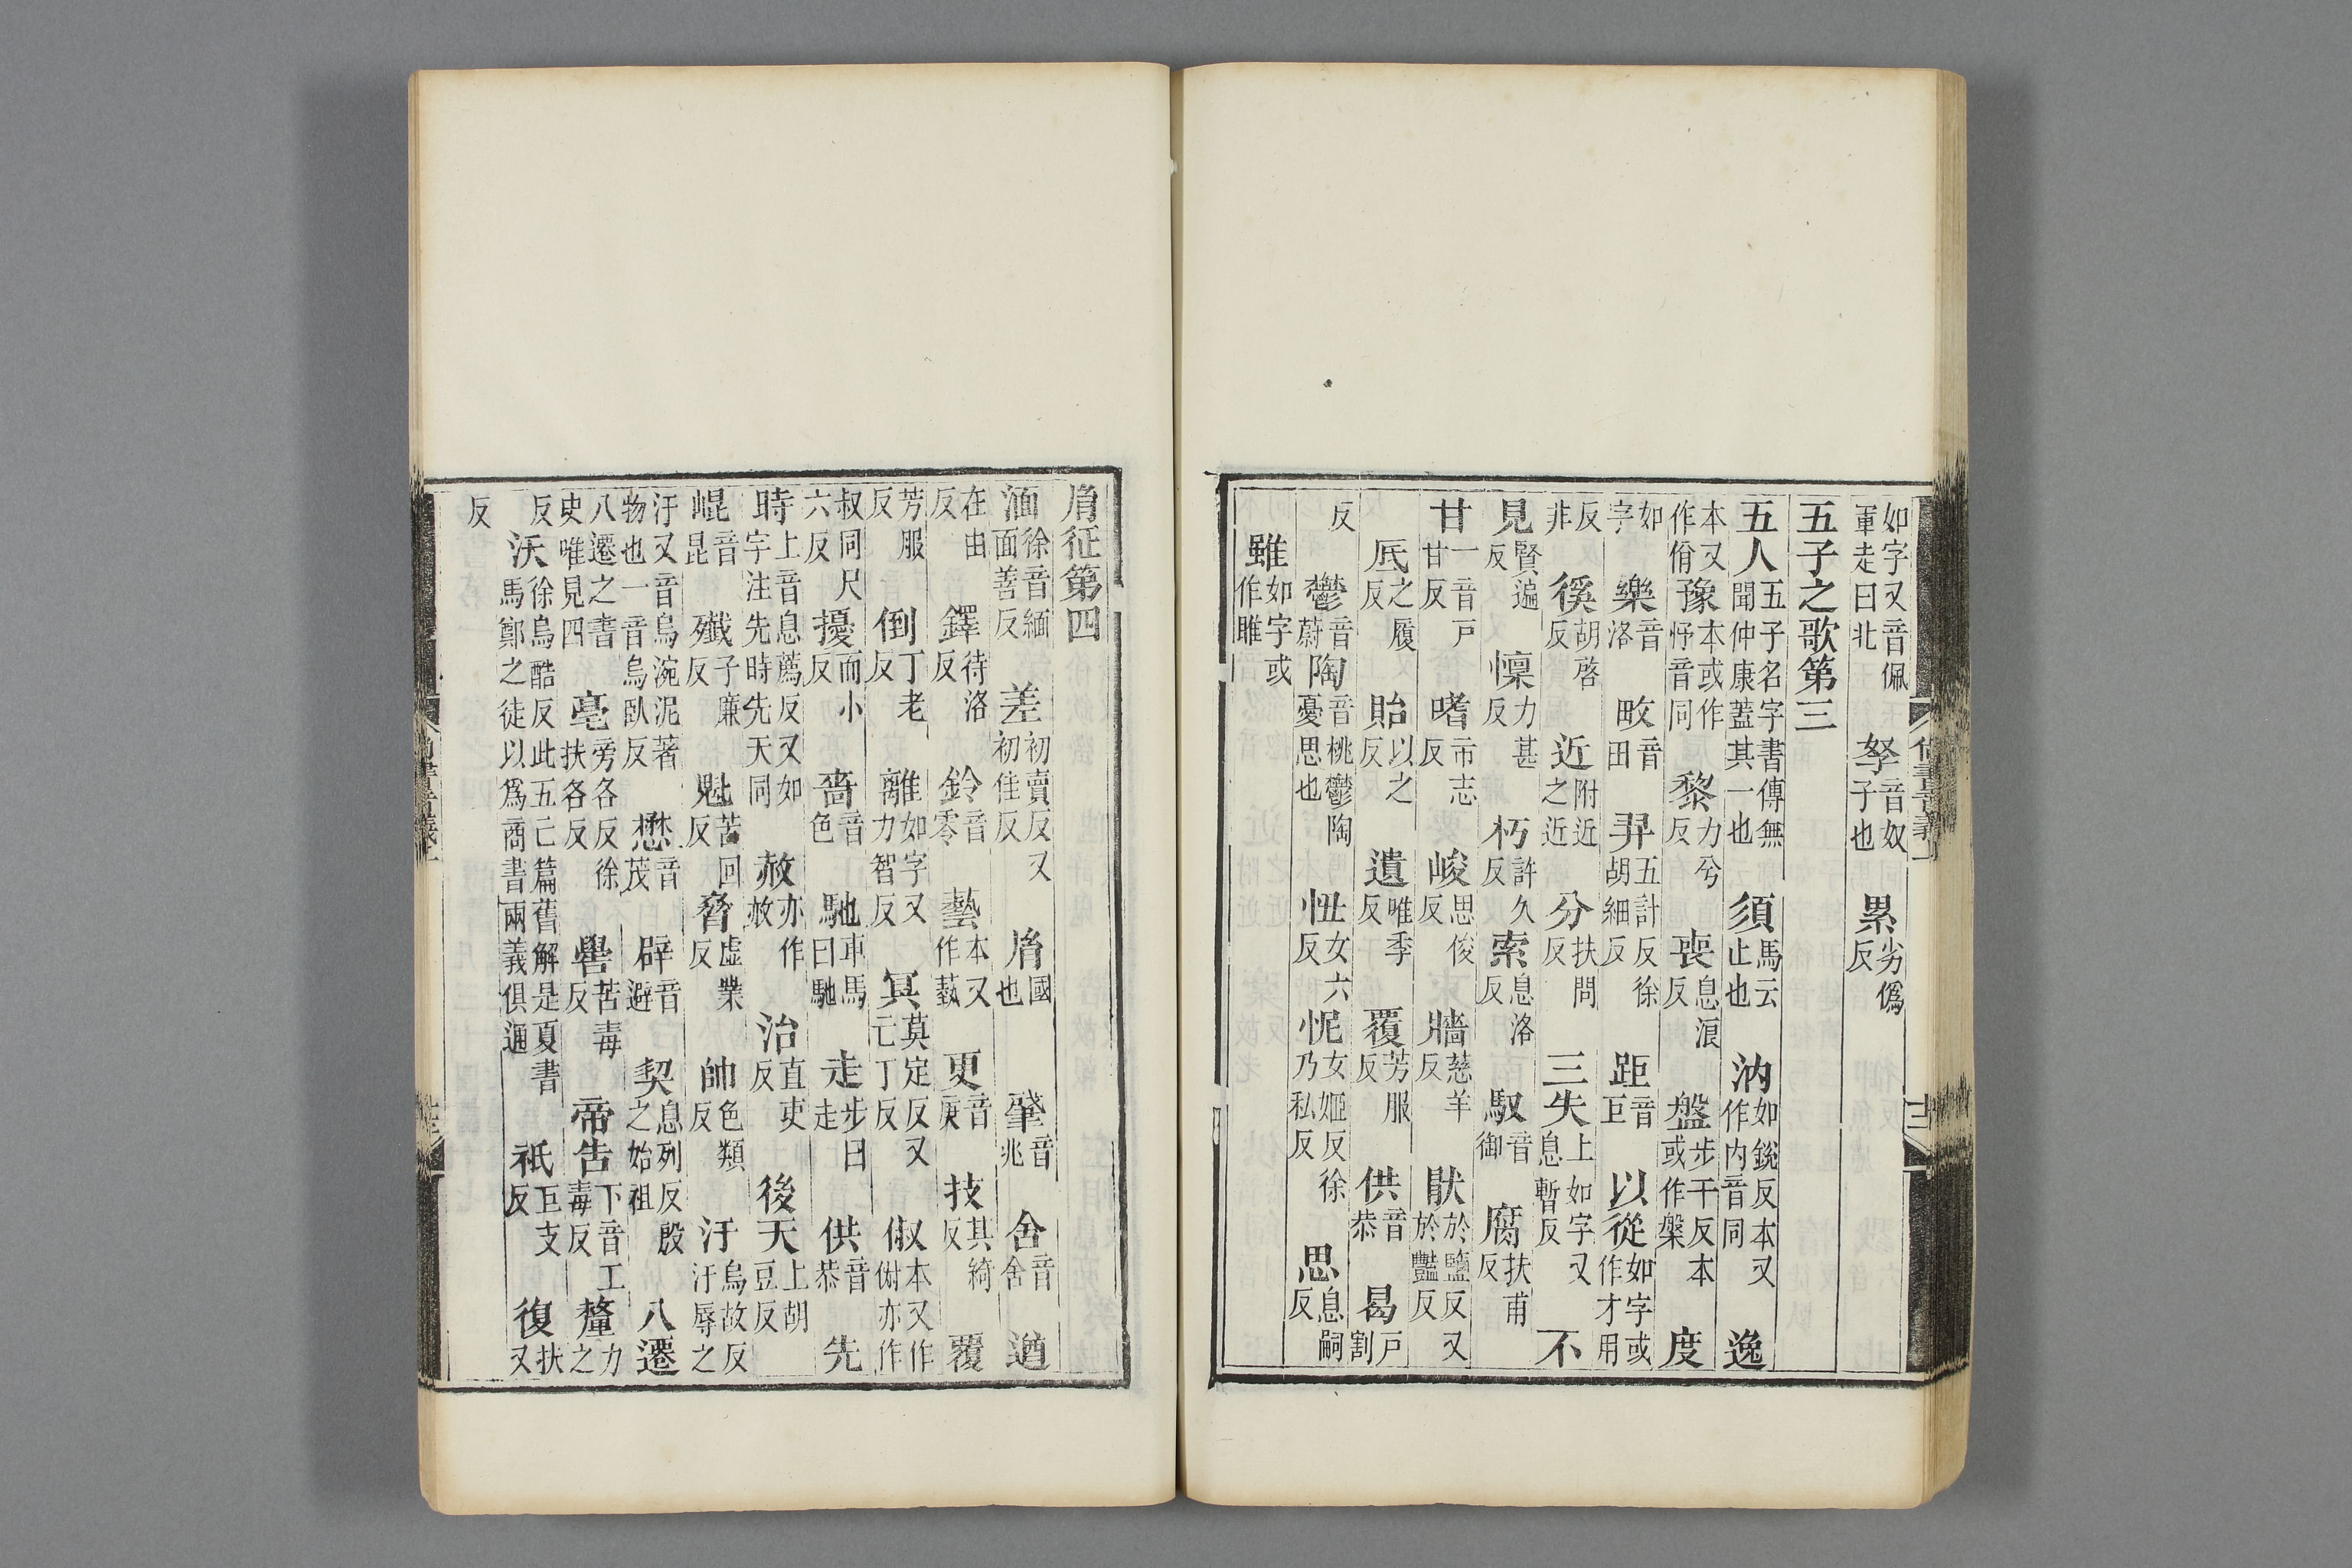 如字又音佩軍走曰北　孥音奴子也　累劣僞反
五子之歌第三
五人五子名字書傳無聞仲康蓋其一也　須馬云止也　汭如銳反本又作内音同　逸
本又作佾　豫本或作忬音同　黎力兮反　喪息浪反　盤步干反本或作槃　度
如字　樂音洛　畋音田　羿五計反徐胡細反　距音巨　以從如字或作才用
反非　徯胡啓反　近附近之近　分扶問反　三失上如字又息暫反　不
見賢遍反　懍力甚反　朽許久反　索息洛反　馭音御　腐扶甫反
甘一音戸甘反　嗜市志反　峻思俊反　牆慈羊反　猒於鹽反又於豔反
厎之履反　貽以之反　遺唯季反　覆芳服反　供音恭　曷戸割
反　鬱音蔚　陶音桃鬱陶憂思也　忸女六反　怩女姬反徐乃私反　思息嗣反
雖如字或作睢
尚書音義上
胤征第四
湎徐音緬面善反　差初賣反又初佳反　胤國也　肇音兆　舍音舍　遒
在由反　鐸待洛反　鈴音零　藝本又作蓺　更音庚　技其綺反　覆
芳服反　倒丁老反　離如字又力智反　冥莫定反又亡丁反　俶本又作㑐亦作
叔同尺六反　擾而小反　嗇音色　馳車馬曰馳　走步曰走　供音恭　先
時上音息薦反又如字注先時先天同　赦亦作赦　治直吏反　後天上胡豆反
崐音昆　殲子廉反　魁苦回反　脅虛業反　帥色類反　汙烏故反汙辱之
汙又音烏涴泥著物也一音烏臥反　懋音茂　辟音避　契息列反殷之始祖　八遷
八遷之書史唯見四　亳旁各反徐扶各反　嚳苦毒反　帝告下音工毒反　釐力之
反　沃徐烏酷反此五亡篇舊解是夏書馬鄭之徒以爲商書兩義俱通　祇巨支反　復扶又
反